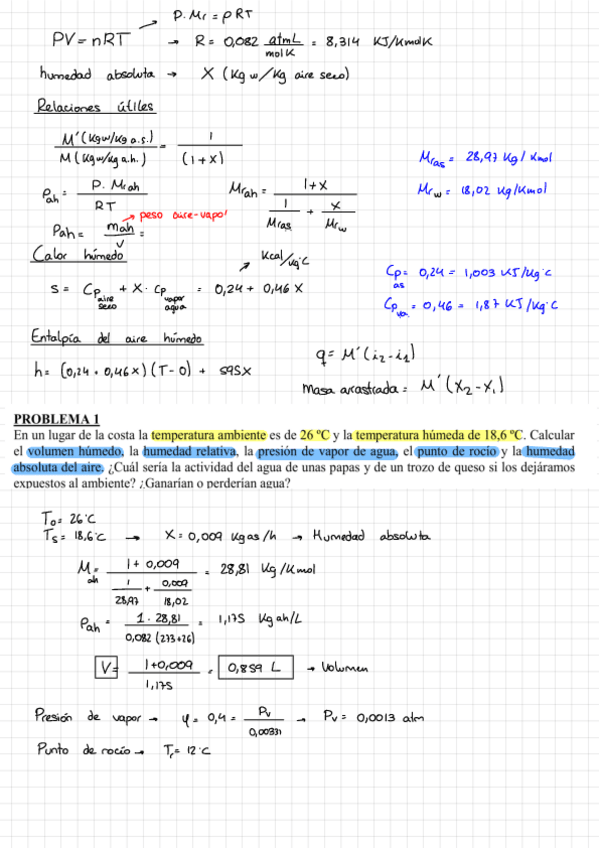 P. Mr = ρRT
PV = nRT → R = 0,082 atm L / mol K = 8,314 KJ/KmolK
humedad absoluta → X (Kg w/Kg aire seco)
Relaciones útiles
M' (Kgw/Kg a.s.) / M (Kgw/Kg a.h.) = 1 / (1+x)
Mras = 28,97 Kg/Kmol
ρah = P. Mrah / RT
Mrah = 1+x / (1/Mras + x/Mrw)
Mrw = 18,02 Kg/Kmol
ρah = mah / V =
→ peso aire-vapor
Calor húmedo
Kcal/Kg°C
S = Cp aire seco + X · Cp vapor agua = 0,24 + 0,46 X
Cp as = 0,24 = 1,003 KJ/Kg°C
Cp va. = 0,46 = 1,87 KJ/Kg°C
Entalpía del aire húmedo
h = (0,24 + 0,46x) (T-0) + 595x
q = M' (i2 - i1)
masa arrastrada = M' (X2 - X1)
PROBLEMA 1
En un lugar de la costa la temperatura ambiente es de 26 ºC y la temperatura húmeda de 18,6 ºC. Calcular
el volumen húmedo, la humedad relativa, la presión de vapor de agua, el punto de rocío y la humedad
absoluta del aire. ¿Cuál sería la actividad del agua de unas papas y de un trozo de queso si los dejáramos
expuestos al ambiente? ¿Ganarían o perderían agua?
To = 26°C
Ts = 18,6°C → X = 0,009 Kgas/h → Humedad absoluta
Mah = 1 + 0,009 / (1/28,97 + 0,009/18,02) = 28,81 Kg/Kmol
ρah = 1 · 28,81 / 0,082 (273+26) = 1,175 Kg ah/L
V = 1+0,009 / 1,175 = 0,859 L → Volumen
Presión de vapor → φ = 0,4 = Pv / 0,00331 → Pv = 0,0013 atm
Punto de rocío → Tr = 12°C